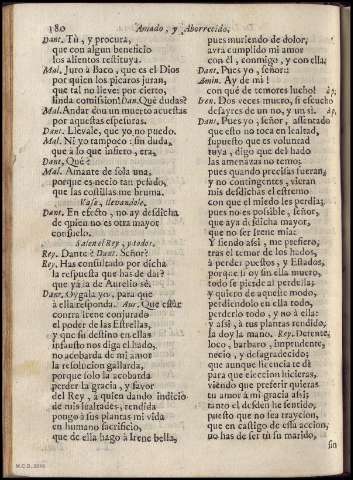 180 Amado, y Aborrecido,
Dant. Tù, y procura,
que con algun beneficio
los alientos restituya.
Mal. Juro à Baco, que es el Dios
por quien los picaros juran,
que tal no lleve: por cierto,
linda comission! Dan. Què dudas?
Mal. Andar con un muerto acuestas
por aquestas espesuras.
Dant. Llevale, que yo no puedo.
Mal. Ni yo tampoco: sin duda,
que à lo que infiero, era,
Dant. Què?
Mal. Amante de sola una,
porque es necio tan pesado,
que las costillas me bruma.
Vase, llevandole.
Dant. En efecto, no ay desdicha
de quien no es otra mayor
consuelo.
Salen el Rey, y todos.
Rey. Dante? Dant. Señor?
Rey. Has consultado por dicha
la respuesta que has de dàr?
que yà la de Aurelio sè.
Dant. Oygala yo, para que
à ella responda. Aur. Que estàr
contra Irene conjurado
el poder de las Estrellas,
y que su destino en ellas
infausto nos diga el hado,
no acobarda de mi amor
la resolucion gallarda,
porque solo la acobarda
perder la gracia, y favor
del Rey, à quien dando indicio
de mis lealtades, rendida
pongo à sus plantas mi vida
en humano sacrificio,
que de ella hago à Irene bella,
pues muriendo de dolor,
avrà cumplido mi amor
con èl, conmigo, y con ella.
Dant. Pues yo, señor:
Amin. Ay de mi!
con què de temores lucho! ap.
Iren. Dos veces muero, si escucho
desayres de un no, y un si. ap.
Dant. Pues yo, señor, assentado
que esto no toca en lealtad,
supuesto que es voluntad
tuya, digo que del hado
las amenazas no temo;
pues quando precisas fueran,
y no contingentes, vieran
mis desdichas el estremo
con que el miedo les perdia;
pues no es possible, señor,
que aya desdicha mayor,
que no ser Irene mia:
Y siendo assi, me prefiero,
tras el temor de los hados,
à perder puestos, y Estados,
porque si oy sin ella muero,
todo se pierde al perderla;
y quiero de aquesse modo,
perdiendolo en ella todo,
perderlo todo, y no à ella:
y assi, à tus plantas rendido,
la doy la mano. Rey. Detente,
loco, barbaro, imprudente,
necio, y desagradecido;
que aunque licencia te dì
para que eleccion hicieras,
viendo que preferir quieras
tu amor à mi gracia assi;
tanto el desdèn he sentido,
puesto que no sea traycion,
que en castigo de essa accion,
no has de ser tù su marido,
sin